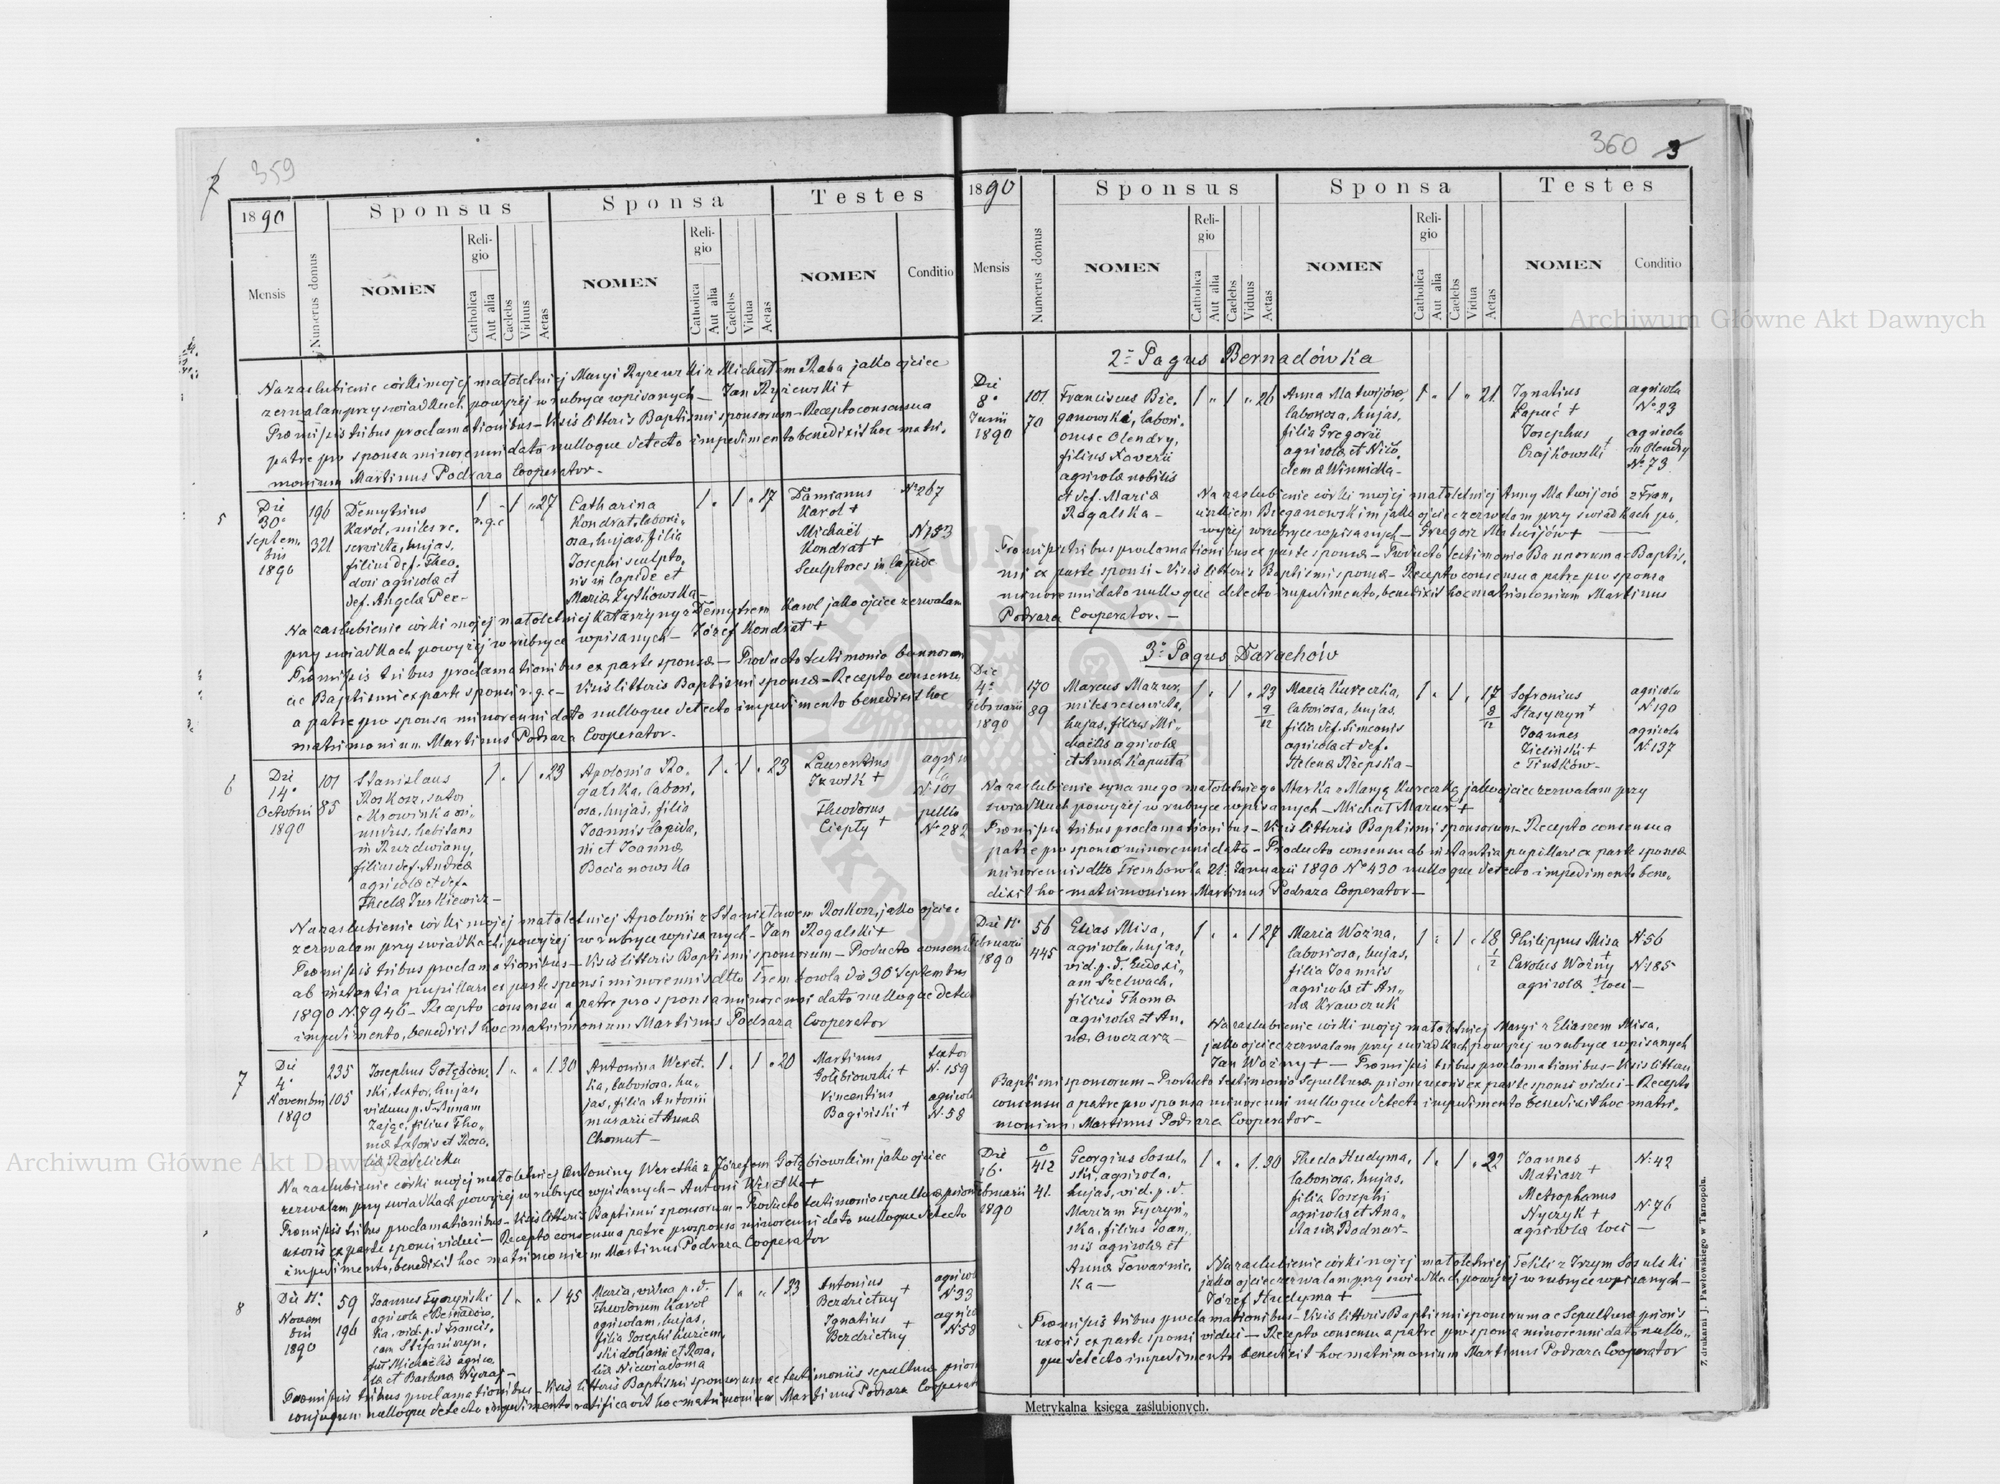 2
359
1890
Sponsus
Sponsa
Testes
Mensis
Numerus domus
NOMEN
Religio
Catholica
Aut alia
Caelebs
Viduus
Aetas
NOMEN
Religio
Catholica
Aut alia
Caelebs
Vidua
Aetas
NOMEN
Conditio
Na zaślubienie córki mojej małoletniej Maryi Ryżewski z Michałem Raba jako ojciec
zezwalam przy świadkach powyżej w rubryce wpisanych – Jan Ryżewski +
Præmissis tribus proclamationibus – Visis litteris Baptismi sponsorum – Recepto consensu a
patre pro sponsa minorenni dato nulloque detecto impedimento benedixit hoc matri-
monium Martinus Podraza Cooperator –
5
Die
30a
Septem
bris
1890
196
321
Demytrius
Karol, miles re-
servista, hujas,
filius def. Theo-
dori agricolæ et
def. Angelæ Pec–
1 r.g.c. - 1 " 27
Catharina
Kondrat, labori-
osa, hujas, filia
Josephi sculpto-
ris in lapide et
Mariæ Żytkowska
1 . 1 . 17
Damianus
Karol +
Michaël
Kondrat +
Sculptores in lapide
No 267
No 153
Na zaślubienie córki mojej małoletniej Katarzyny z Demytrem Karol jako ojciec zezwalam
przy świadkach powyżej w rubryce wpisanych – Józef Kondrat +
Præmissis tribus proclamationibus ex parte sponsæ – Producto testimonio bannorum
ac Baptismi ex parte sponsi r.g.c. – Visis litteris Baptismi sponsæ – Recepto consensu
a patre pro sponsa minorenni dato nulloque detecto impedimento benedixit hoc
matrimonium Martinus Podraza Cooperator –
6
Die
14a
Octobris
1890
101
85
Stanislaus
Roskosz, sutor
e Krowinka ori-
undus, habitans
in Ruzdwiany,
filius def. Andreæ
agricolæ et def.
Theclæ Jurkiewicz –
1 . 1 . 23
Apolonia Ro-
galska, labori-
osa, hujas, filia
Joannis lapida-
rii et Joannæ
Bocianowska
1 . 1 . 23
Laurentius
Jaxwik +
Theodorus
Ciepły +
No 101
pello
No 282
Na zaślubienie córki mojej małoletniej Apolonii z Stanisławem Roskosz, jako ojciec
zezwalam przy świadkach powyżej w rubryce wpisanych – Jan Rogalski +
Præmissis tribus proclamationibus – Visis litteris Baptismi sponsorum – Producto consensu
ab instantia pupillari ex parte sponsi minorennis ddto Trembowla die 30 Septembris
1890 N. 7946 – Recepto consensu a patre pro sponsa minorenni dato nulloque detecto
impedimento, benedixit hoc matrimonium Martinus Podraza Cooperator
7
Die
4a
Novembris
1890
235
105
Josephus Gołębiow-
ski, textor, hujas,
viduus p. d. Annam
Zając, filius Tho-
mæ textoris et Rosa-
1 " " 1 30
Antonina Weret-
ka, laboriosa, hu-
jas, filia Antonii
murarii et Annæ
Chomut –
1 . 1 . 20
Martinus
Gołębiowski +
Vincentius
Bagiński +
textor
N. 159
agricola
N. 58
Na zaślubienie córki mojej małoletniej Antoniny Weretka z Józefem Gołębiowskim jako ojciec
zezwalam przy świadkach powyżej w rubryce wpisanych – Antoni Weretka +
Præmissis tribus proclamationibus – Visis litteris Baptismi sponsorum – Producto testimonio sepulturæ prioris
uxoris ex parte sponsi vidui – Recepto consensu a patre pro sponsa minorenni dato nulloque detecto
impedimento, benedixit hoc matrimonium Martinus Podraza Cooperator
8
Die 11a
Novem
bris
1890
59
196
Joannes Tyczyński
agricola e Bernadów-
ka, vid. p. d. Francis-
cam Stefaniszyn,
fil. Michaëlis agrico-
læ et Barbaræ Nyczaj –
1 " " 1 45
Maria, vidua p. d.
Theodorum Karol
agricolam, hujas,
filia Josephi Kuriem-
ski doliarii et Rosa-
liæ Niewiadoma
1 " " 1 33
Antonius
Bezdrietny +
Ignatius
Bezdrietny +
agricola
N. 33
agricola
N. 58
Præmissis tribus proclamationibus – Visis litteris Baptismi sponsorum ac testimoniis sepulturæ priorum
conjugum nulloque detecto impedimento ratificavit hoc matrimonium Martinus Podraza Cooperator
360 3
1890
Sponsus
Sponsa
Testes
Mensis
Numerus domus
NOMEN
Religio
Catholica
Aut alia
Caelebs
Viduus
Aetas
NOMEN
Religio
Catholica
Aut alia
Caelebs
Vidua
Aetas
NOMEN
Conditio
2: Pagus Bernadówka
Die
8a
Junii
1890
101
70
Franciscus Bie-
ganowski, labori-
osus e Olendry,
filius Xaverii
agricolæ nobilis
et def. Mariæ
Rogalska –
1 " 1 " 26
Anna Matwijów,
laboriosa, hujas,
filia Gregorii
agricolæ et Nico-
demæ Winnicka –
1 . 1 . 21
Ignatius
Łapuć +
Josephus
Czajkowski +
agricola
No 23
agricola
in Olendry
No 73
Na zaślubienie córki mojej małoletniej Anny Matwijów z Fran-
ciszkiem Bieganowskim jako ojciec zezwalam przy świadkach po-
wyżej w rubryce wpisanych – Grzegorz Matwijów +
Præmissis tribus proclamationibus ex parte sponsæ – Producto testimonio Bannorum ac Baptis-
mi ex parte sponsi – Visis litteris Baptismi sponsæ – Recepto consensu a patre pro sponsa
minorenni dato nulloque detecto impedimento, benedixit hoc matrimonium Martinus
Podraza Cooperator. –
3: Pagus Darachów
Die
4a
Februarii
1890
170
89
Marcus Mazur,
miles reservista,
hujas, filius Mi-
chaëlis agricolæ
et Annæ Kapusta
1 . 1 . 23 9/12
Maria Kureczka,
laboriosa, hujas,
filia def. Simeonis
agricolæ et def.
Helenæ Rzepska –
1 . 1 . 17 8/12
Sofronius
Stasyszyn +
Joannes
Zieliński +
e Tiutków –
agricola
N. 190
agricola
N. 137
Na zaślubienie syna mego małoletniego Marka z Maryą Kureczką, jako ojciec zezwalam przy
świadkach powyżej w rubryce wpisanych – Michał Mazur +
Præmissis tribus proclamationibus – Visis litteris Baptismi sponsorum – Recepto consensu a
patre pro sponso minorenni dato – Producto consensu ab instantia pupillari ex parte sponsæ
minorennis ddto Trembowla 21: Januarii 1890 No 430 nulloque detecto impedimento bene-
dixit hoc matrimonium Martinus Podraza Cooperator –
Die 11a
Februarii
1890
56
445
Elias Misa,
agricola, hujas,
vid. p. d. Eudoxi-
am Szelwach,
filius Thomæ
agricolæ et An-
næ Owczarz –
1 . . 1 27
Maria Woźna,
laboriosa, hujas,
filia Joannis
agricolæ et An-
næ Krawczuk
1 : 1 . 18 1/2
Philippus Misa +
Carolus Woźny +
agricolæ loci –
N. 56
N. 185
Na zaślubienie córki mojej małoletniej Maryi z Eliaszem Misa,
jako ojciec zezwalam przy świadkach powyżej w rubryce wpisanych
Jan Woźny + – Præmissis tribus proclamationibus – Visis litteris
Baptismi sponsorum – Producto testimonio Sepulturæ prioris uxoris ex parte sponsi vidui – Recepto
consensu a patre pro sponsa minorenni nulloque detecto impedimento benedixit hoc matri-
monium Martinus Podraza Cooperator –
Die
16a
Februarii
1890
412
41.
Georgius Sosul-
ski, agricola,
hujas, vid. p. d.
Mariam Tyczyń-
ska, filius Joan-
nis agricolæ et
Annæ Towarnic-
ka –
1 . . 1. 30
Thecla Hudyma,
laboriosa, hujas,
filia Josephi
agricolæ et Ana-
stasiæ Bodnar –
1 . 1 . 22
Joannes
Matiasz +
Metrophanus
Nyczyk +
agricolæ loci –
N. 42
N. 76
Na zaślubienie córki mojej małoletniej Tekli z Jurzym Sosulski
jako ojciec zezwalam przy świadkach powyżej w rubryce wpisanych –
Józef Hudyma +
Præmissis tribus proclamationibus – Visis litteris Baptismi sponsorum ac Sepulturæ prioris
uxoris ex parte sponsi vidui – Recepto consensu a patre pro sponsa minorenni dato nullo-
que detecto impedimento benedixit hoc matrimonium Martinus Podraza Cooperator
Metrykalna księga zaślubionych.
Z drukarni J. Pawłowskiego w Tarnopolu.
Archiwum Główne Akt Dawnych
Archiwum Główne Akt Dawnych